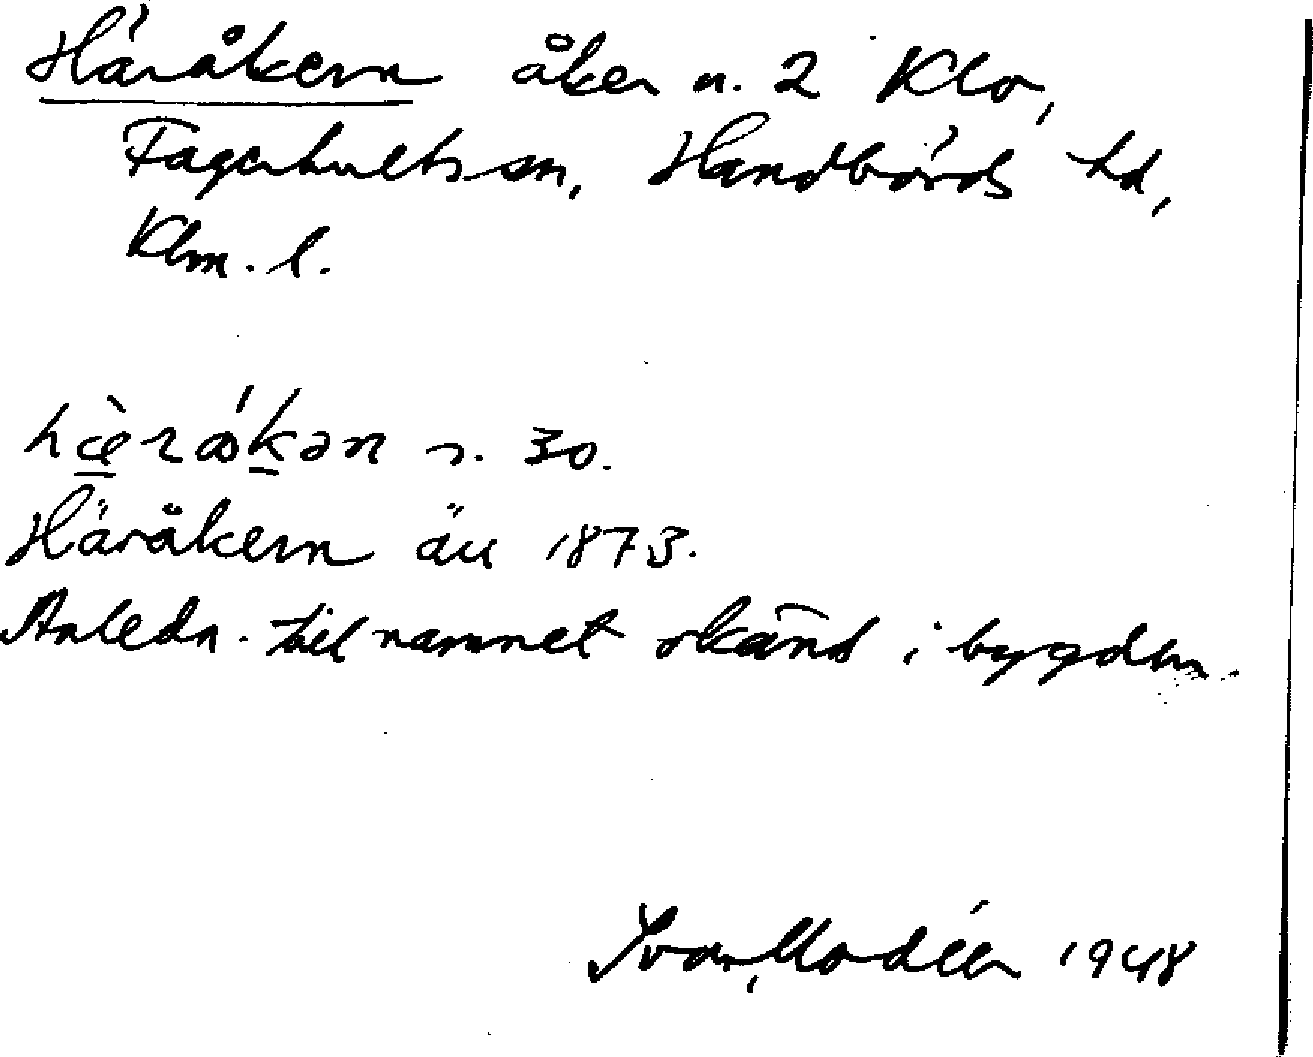 Häråkern åker n. 2 Klo,
Fagerhults sn, Handbörds hd,
Klm. l.
hæ̀råkən s. 30.
Häråkern äu 1873.
Anledn. till namnet okänd i bygden.
Ivar Modéer 1948